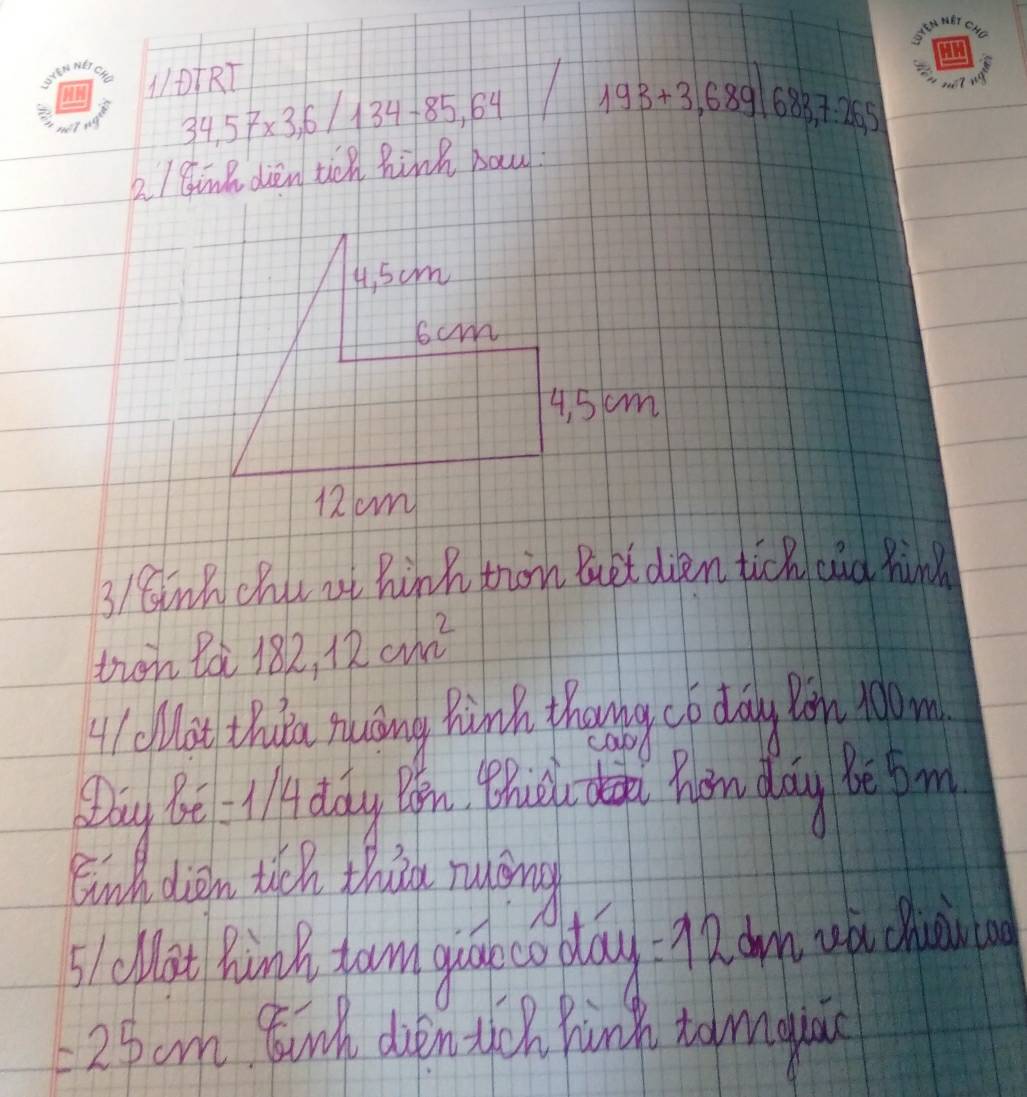 LUYỆN NÉT CHỮ
HH
Rèn nết người
LUYỆN NÉT CHỮ
HH
Rèn nết người
1/ ĐTRT
34,57 x 3,6 / 134 - 85,64 / 193 + 3,689 | 683,7 : 26,5
2/ Tính diện tích hình sau:
4,5 cm
6 cm
4,5 cm
12 cm
3/ Tính chu vi hình tròn biết diện tích của hình
tròn là 182,12 cm²
4/ Một thửa ruộng hình thang có đáy lớn 100 m.
Đáy bé = 1/4 đáy lớn. Chiều cao hơn đáy bé 5 m.
Tính diện tích thửa ruộng
5/ Một hình tam giác có đáy = 12 dm và chiều cao
= 25 cm. Tính diện tích hình tam giác